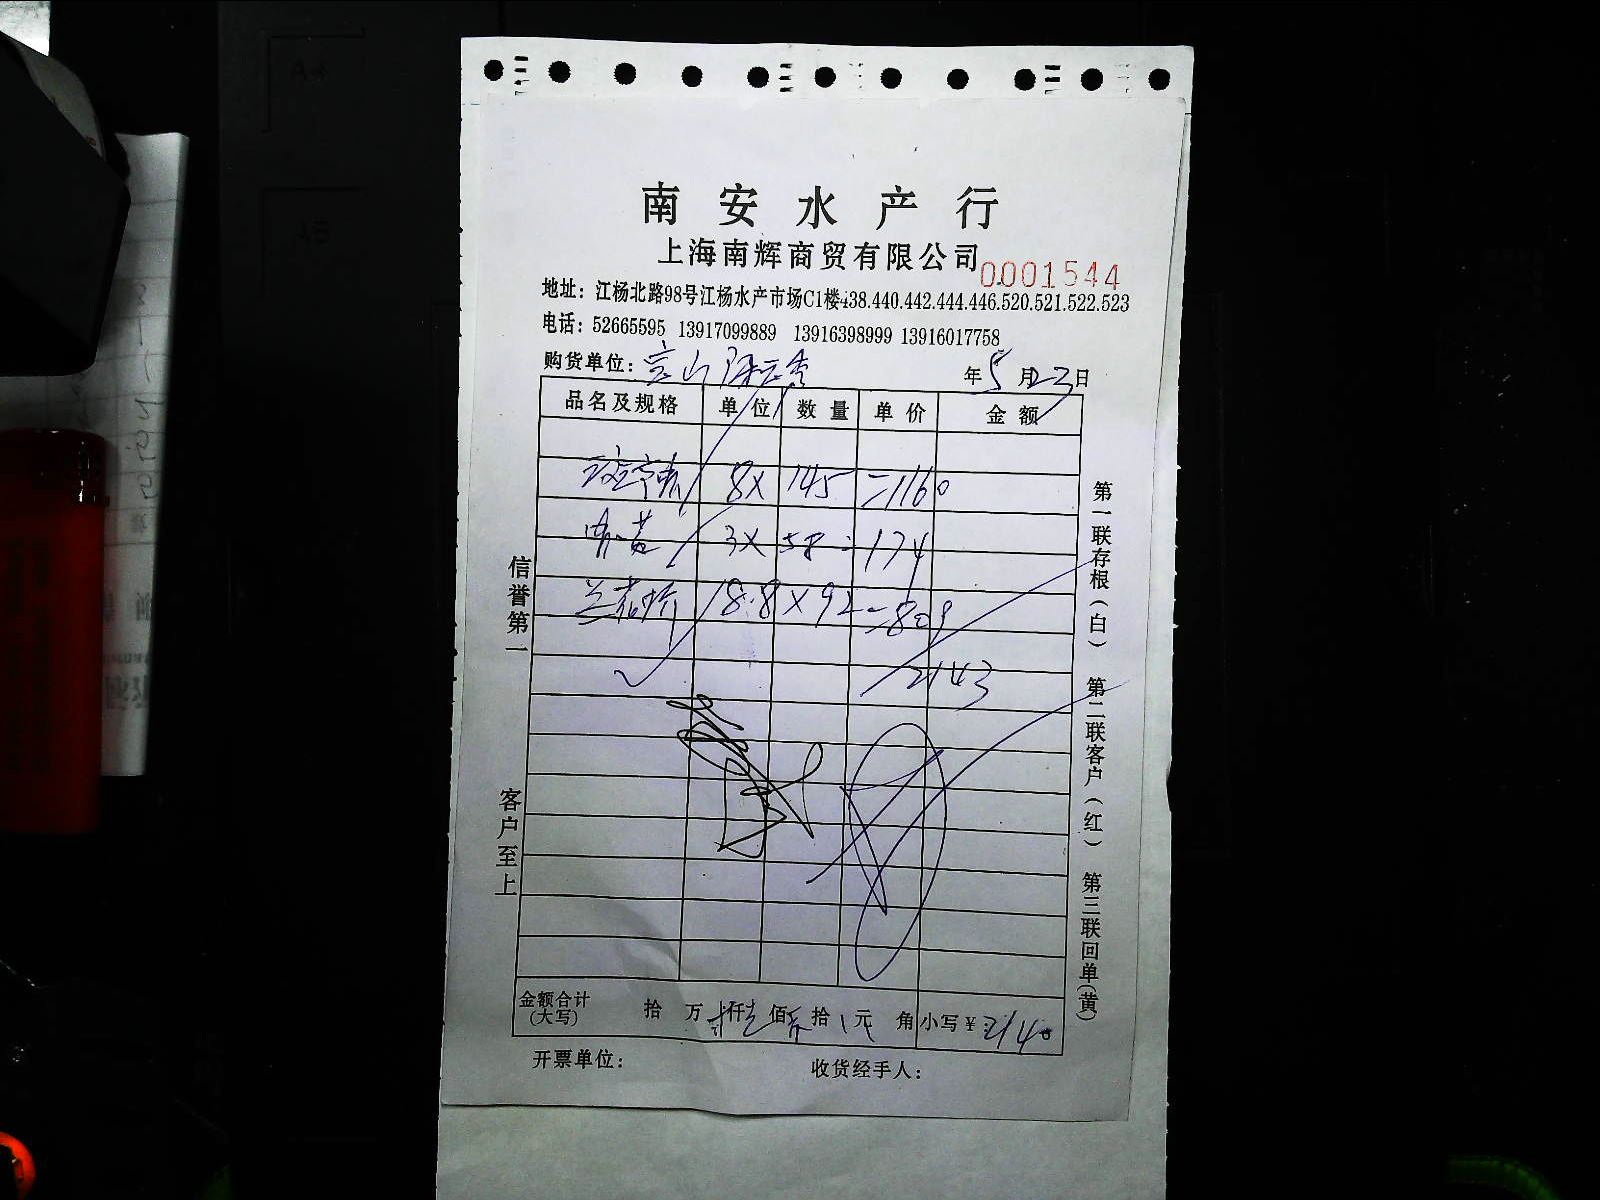 南安水产行
上海南辉商贸有限公司
0001544
地址：江杨北路98号江杨水产市场C1楼438.440.442.444.446.520.521.522.523
电话：52665595 13917099889 13916398999 13916017758
购货单位：宝山 年5月23日
品名及规格 单位 数量 单价 金额
8X 145 =1160
3X 58 = 174
18.8 X 92 = 809
2143
信誉第一
客户至上
第一联存根（白） 第二联客户（红） 第三联回单（黄）
金额合计（大写） 拾 万 仟 佰 拾 元 角 小写￥：2140
开票单位： 收货经手人：